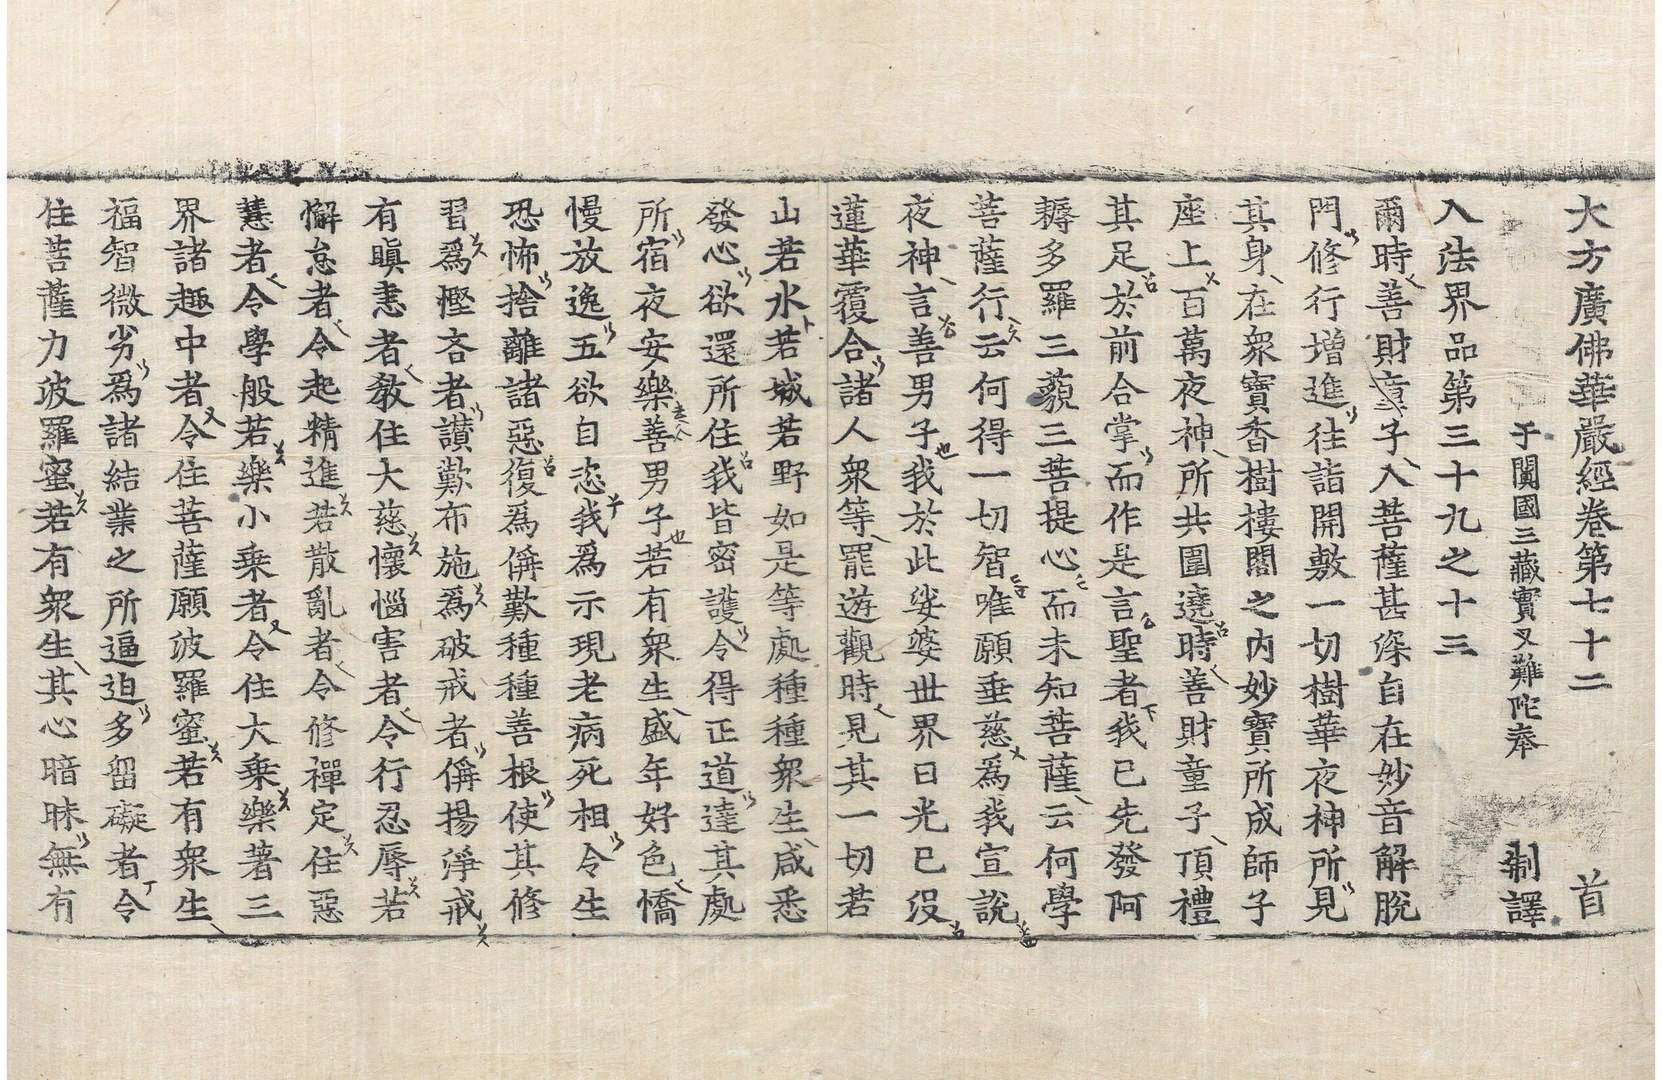 大方廣佛華嚴經卷第七十二 首
于闐國三藏實叉難陀奉 制譯
入法界品第三十九之十三
爾時善財童子入菩薩甚深自在妙音解脫
門修行增進往詣開敷一切樹華夜神所見
其身在衆寶香樹樓閣之內妙寶所成師子
座上百萬夜神所共圍遶時善財童子頂禮
其足於前合掌而作是言聖者我已先發阿
耨多羅三藐三菩提心而未知菩薩云何學
菩薩行云何得一切智唯願垂慈爲我宣說
夜神言善男子我於此娑婆世界日光已沒
蓮華覆合諸人衆等罷遊觀時見其一切若
山若水若城若野如是等處種種衆生咸悉
發心欲還所住我皆密護令得正道達其處
所宿夜安樂善男子若有衆生盛年好色憍
慢放逸五欲自恣我爲示現老病死相令生
恐怖捨離諸惡復爲稱歎種種善根使其修
習爲慳吝者讃歎布施爲破戒者稱揚淨戒
有瞋恚者教住大慈懷惱害者令行忍辱若
懈怠者令起精進若散亂者令修禪定住惡
慧者令學般若樂小乘者令住大乘樂著三
界諸趣中者令住菩薩願波羅蜜若有衆生
福智微劣爲諸結業之所逼迫多留礙者令
住菩薩力波羅蜜若有衆生其心暗昧無有